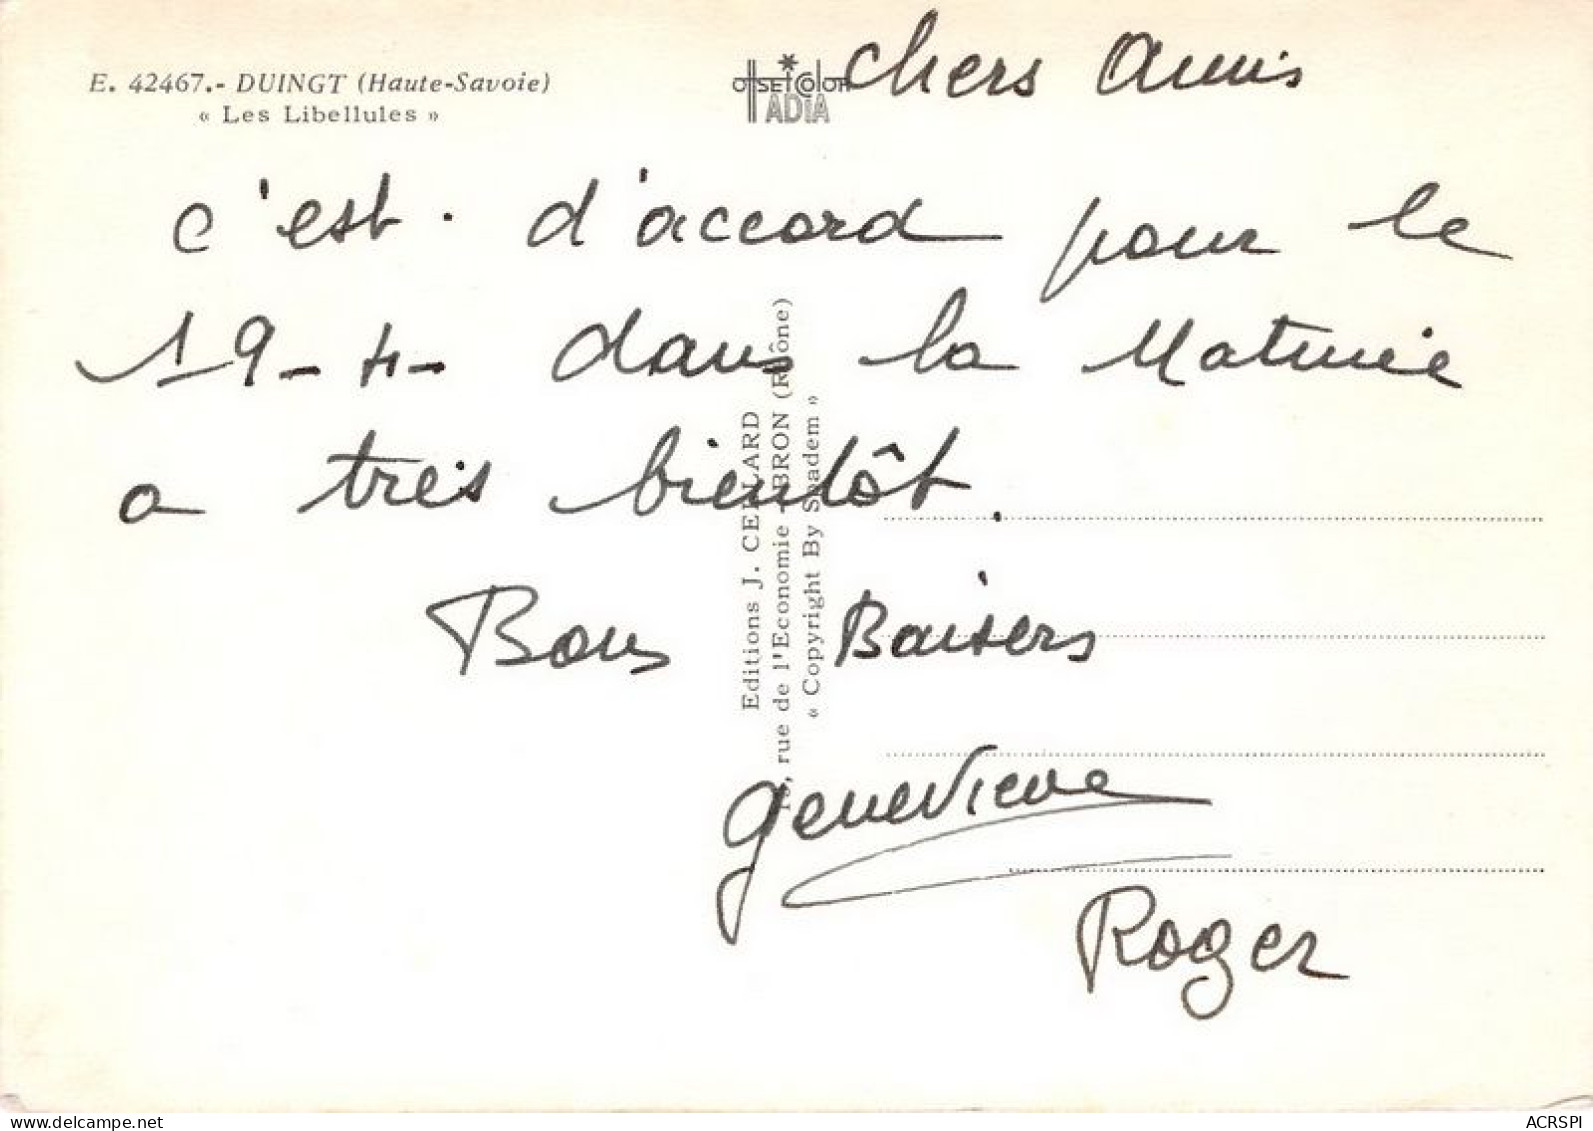 E. 42467.- DUINGT (Haute-Savoie)
« Les Libellules »
offset color
ADIA
Chers Amis
c'est d'accord pour le
19-4- dans la Matinée
a très bientôt.
Bons Baisers
Geneviève
Roger
Editions J. CELLARD
rue de l'Economie - BRON (Rhône)
« Copyright By Spadem »
www.delcampe.net
ACRSPI